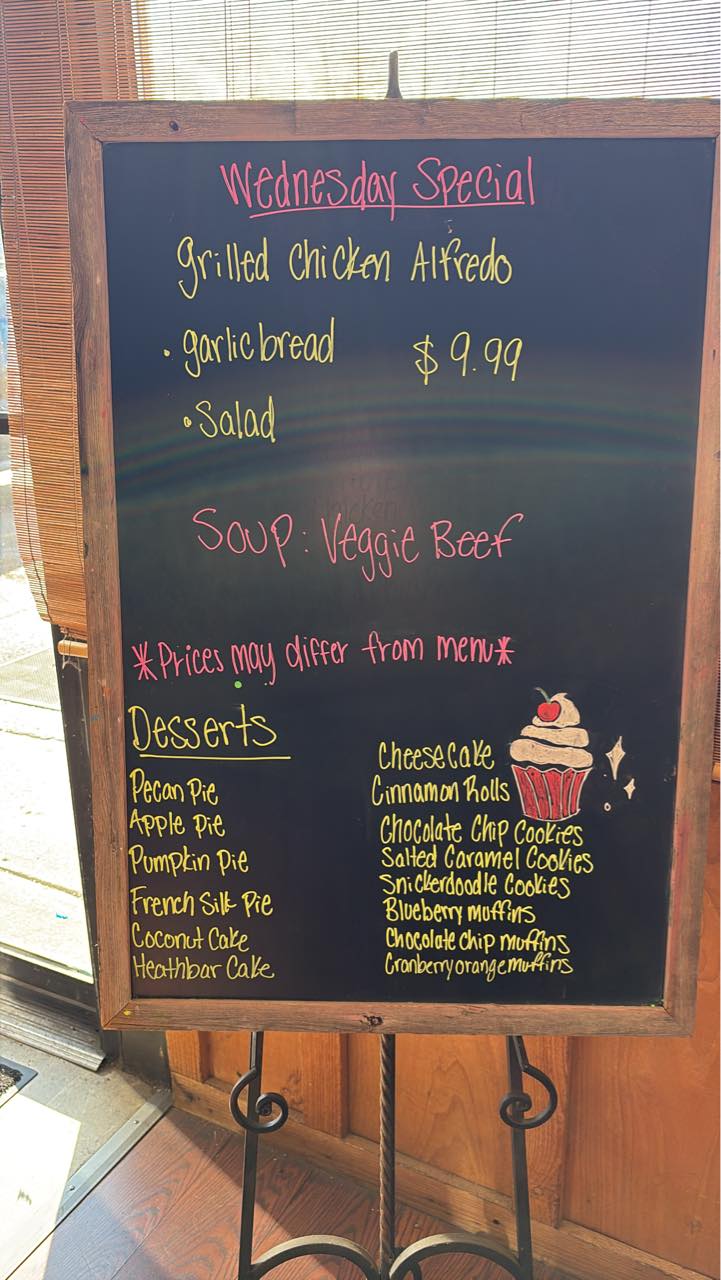 Wednesday Special
Grilled Chicken Alfredo
· garlic bread $9.99
· Salad
Soup: Veggie Beef
*Prices may differ from menu*
Desserts
Pecan Pie
Apple Pie
Pumpkin Pie
French Silk Pie
Coconut Cake
Heathbar Cake
Cheese Cake
Cinnamon Rolls
Chocolate Chip Cookies
Salted Caramel Cookies
Snickerdoodle Cookies
Blueberry muffins
Chocolate chip muffins
Cranberry orange muffins